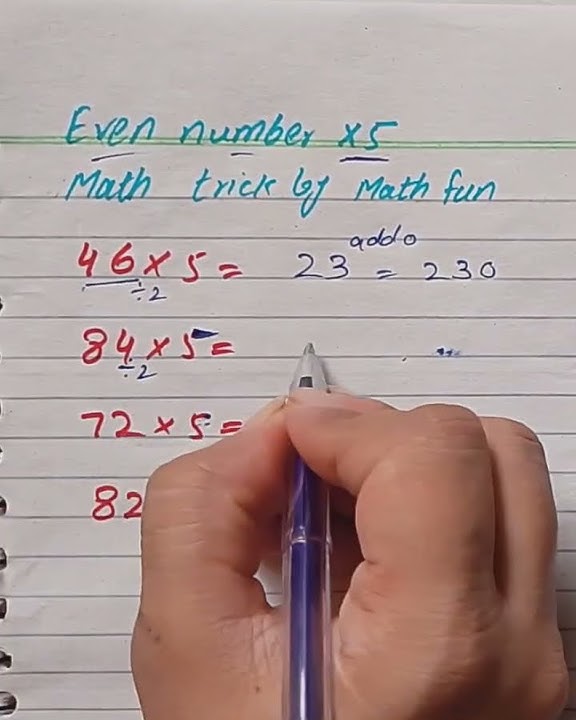 Even number ×5
Math trick by Math fun
46 × 5 = 23 = 230
add 0
÷2
84 × 5 =
÷2
72 × 5 =
82